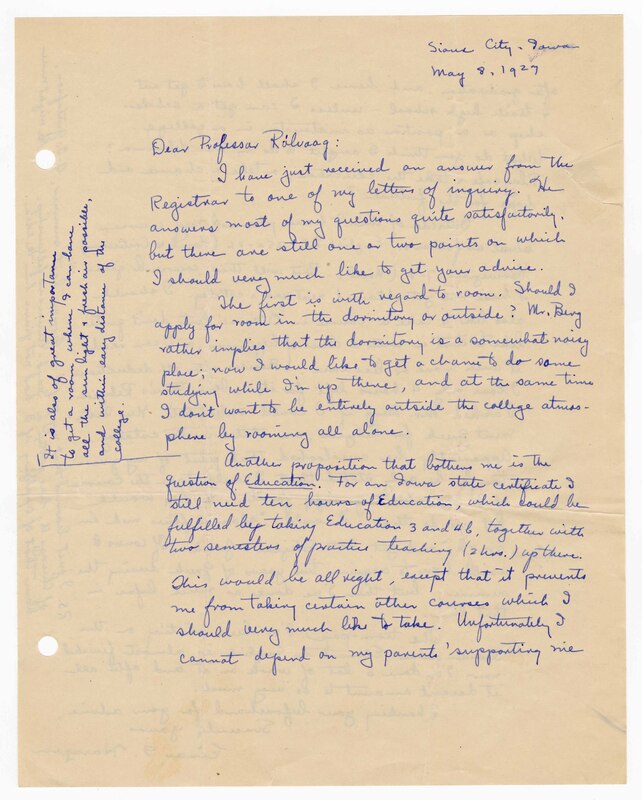 Sioux City, Iowa
May 8, 1927
Dear Professor Rölvaag:
I have just received an answer from the
Registrar to one of my letters of inquiry. He
answers most of my questions quite satisfactorily,
but there are still one or two points on which
I should very much like to get your advice.
The first is with regard to room. Should I
apply for room in the dormitory or outside? Mr. Berg
rather implies that the dormitory is a somewhat noisy
place; now I would like to get a chance to do some
studying while I'm up there, and at the same time
I don't want to be entirely outside the college atmos-
phere by rooming all alone.
It is also of great importance
to get a room where I can have
all the sun light & fresh air possible,
and within easy distance of the
college.
Another proposition that bothers me is the
question of Education. For an Iowa state certificate I
still need ten hours of Education, which could be
fulfilled by taking Education 3 and 46, together with
two semesters of practice teaching (2 hrs.) up there.
This would be all right, except that it prevents
me from taking certain other courses which I
should very much like to take. Unfortunately I
cannot depend on my parents' supporting me